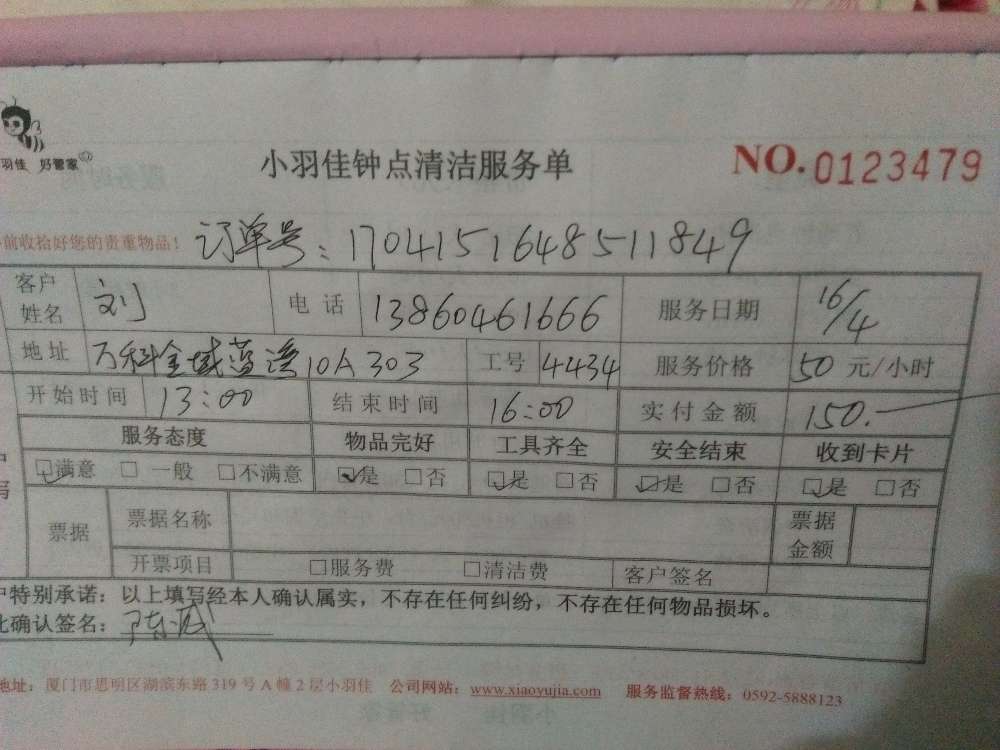 羽佳 好管家
小羽佳钟点清洁服务单 NO.0123479
前收拾好您的贵重物品! 订单号:1704151648511849
客户姓名 刘 电话 13860461666 服务日期 16/4
地址 万科金域蓝湾10A303 工号 4434 服务价格 50 元/小时
开始时间 13:00 结束时间 16:00 实付金额 150.-
服务态度 物品完好 工具齐全 安全结束 收到卡片
☑满意 □一般 □不满意 ☑是 □否 ☑是 □否 ☑是 □否 ☑是 □否
票据 票据名称 票据金额
开票项目 □服务费 □清洁费 客户签名
户特别承诺:以上填写经本人确认属实,不存在任何纠纷,不存在任何物品损坏。
此确认签名:
地址:厦门市思明区湖滨东路319号A幢2层小羽佳 公司网站:www.xiaoyujia.com 服务监督热线:0592-5888123